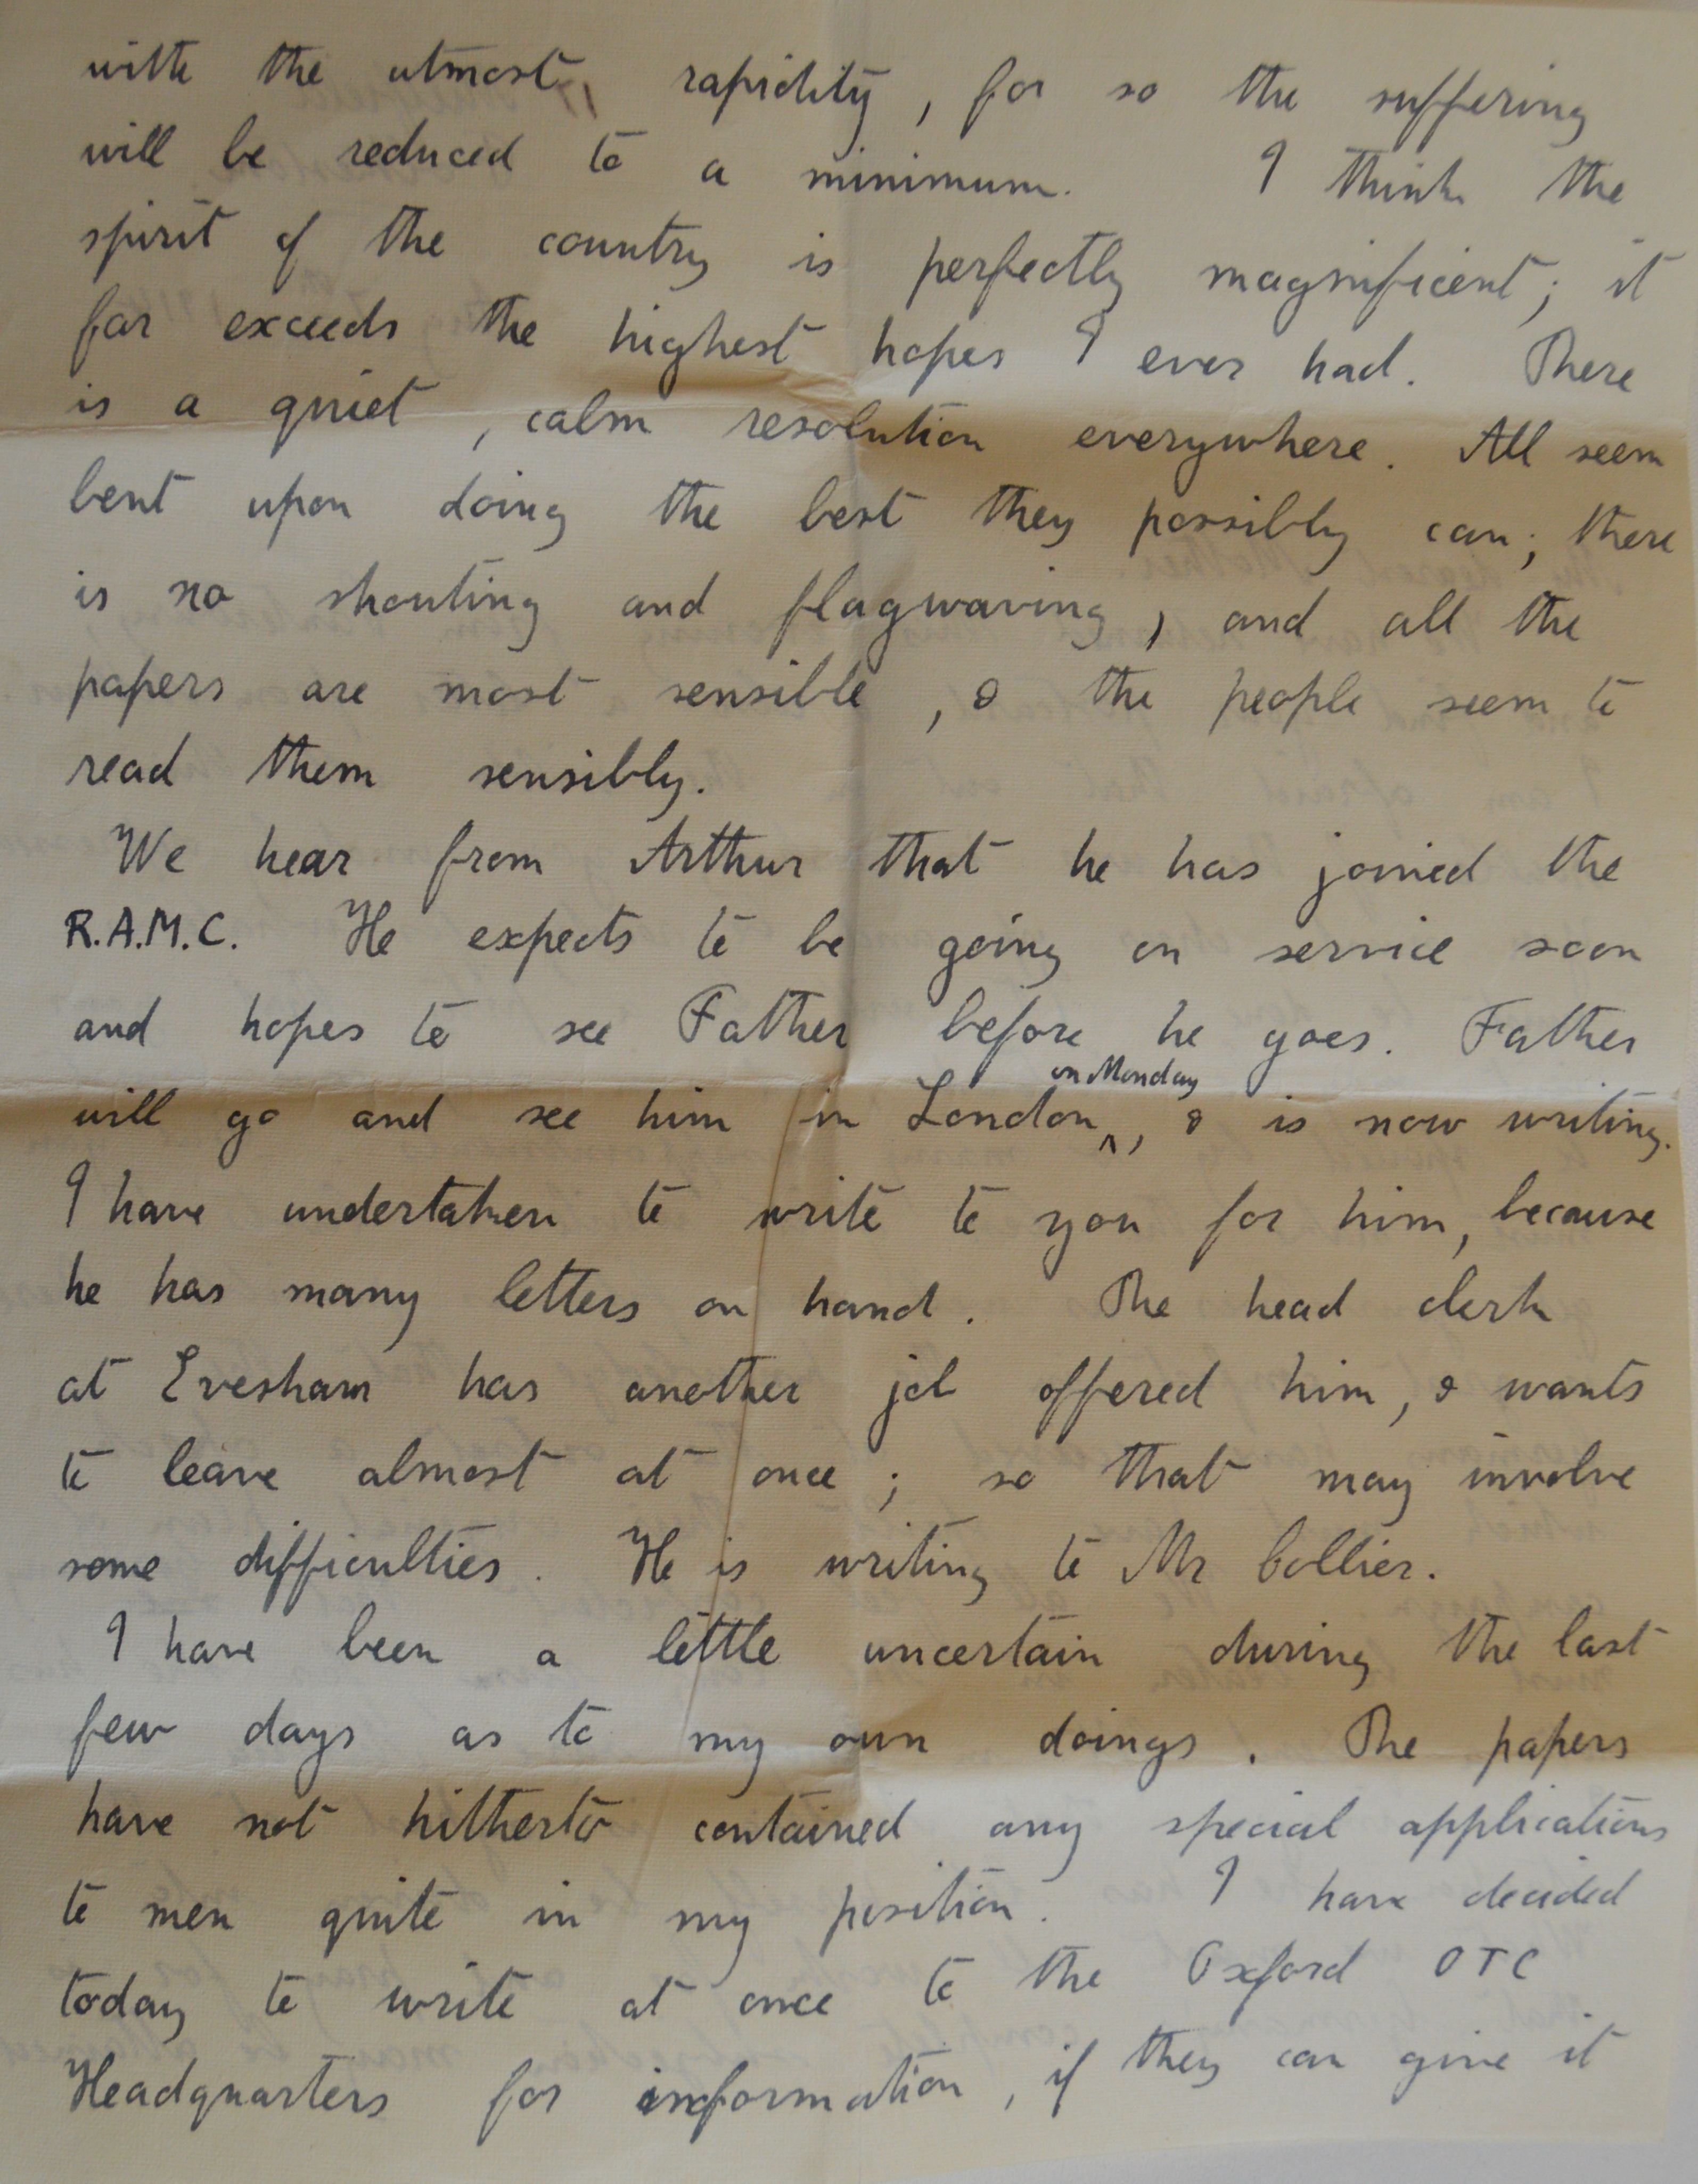 with the utmost rapidity, for so the suffering
will be reduced to a minimum. I think the
spirit of the country is perfectly magnificent; it
far exceeds the highest hopes I ever had. There
is a quiet, calm resolution everywhere. All seem
bent upon doing the best they possibly can; there
is no shouting and flagwaving, and all the
papers are most sensible, & the people seem to
read them sensibly.
We hear from Arthur that he has joined the
R.A.M.C. He expects to be going on service soon
and hopes to see Father before he goes. Father
on Monday
will go and see him in London, & is now writing.
I have undertaken to write to you for him, because
he has many letters on hand. The head clerk
at Evesham has another job offered him, & wants
to leave almost at once; so that may involve
some difficulties. He is writing to Mr Collier.
I have been a little uncertain during the last
few days as to my own doings. The papers
have not hitherto contained any special applications
to men quite in my position. I have decided
today to write at once to the Oxford OTC
Headquarters for information, if they can give it